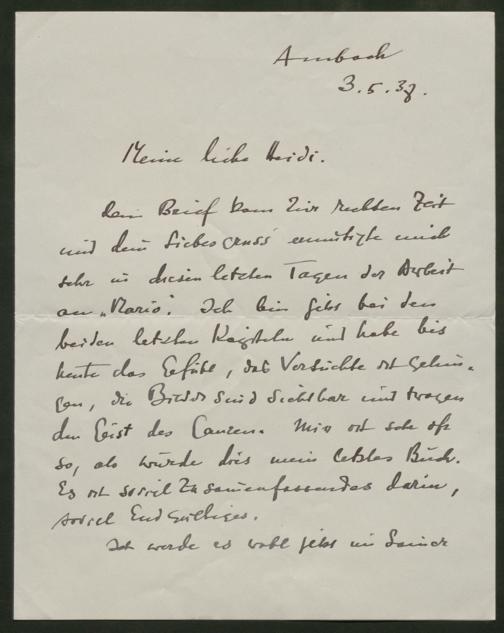 Ambach
3.5.38.
Meine liebe Heidi.
Dein Brief kam zur rechten Zeit
und dein Liebesgruss ermutigte mich
sehr in diesen letzten Tagen der Arbeit
an „Mario“. Ich bin jetzt bei den
beiden letzten Kapiteln und habe bis
heute das Gefühl, das Versuchte ist gelun-
gen, die Bilder sind sichtbar und tragen
den Geist des Ganzen. Mir ist sehr oft
so, als würde dies mein letztes Buch.
Es ist soviel Zusammenfassendes darin,
soviel Endgültiges.
Ich werde es wohl jetzt im